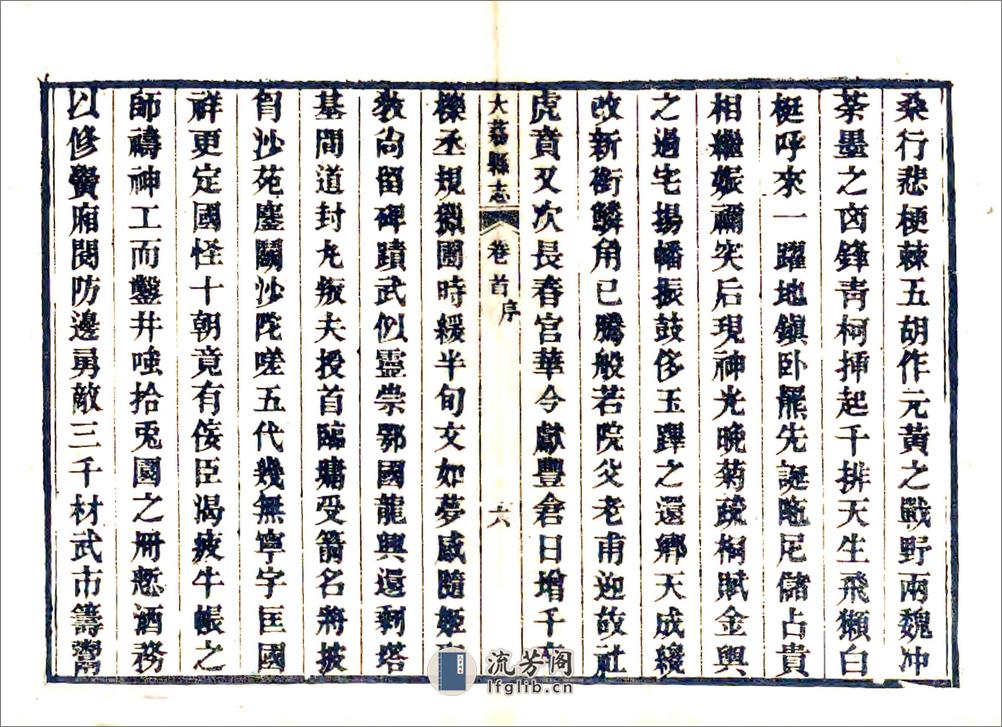 桑行悲梗棘五胡作元黃之戰野兩魏冲
荼墨之鹵鋒靑柯揷起千排天生飛獺白
梃呼來一躍地鎭卧羆先誕虺足儲占貴
相繼娠禰突后現神光晚菊疏桐賦金輿
之過宅揚幡振鼓侈玉蹕之還鄕天成綴
改新銜鱗角已騰般若院父老甫迎故社
虎賁又次長春宮華今獻豐倉日增千
大荔縣志 卷首 序 六
櫟丞規微圃時緩半旬文如夢感隨姬
敎尙留碑蹟武似靈崇鄂國龍興還剩塔
基間道封丸叛夫授首臨墉受箭名將披
胷沙苑鏖鬭沙陀嗟五代幾無寧宇匡國
祥更定國怪十朝竟有侫臣渴疲牛帳之
師禱神工而鑿井嗤拾兎國之冊慙酒務
以修黌廂閱防邊勇敵三千材武市籌
流芳阁
lfglib.cn